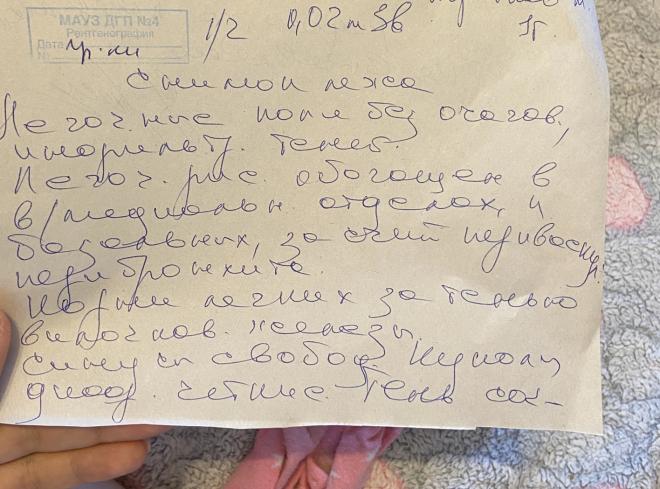 МАУЗ ДГП №4
Рентгенография
Дата
№
1/2 0,02 mЗв 1г.
Снимок лежа
Легочные поля без очагов,
инфильтр. теней.
Легоч. рис. обогощен в
в/медиальн. отделах, и
базальных, за счёт периваскул.
перибронхита.
Корни легких за тенью
вилочков. железы,
синусы свобод. куполы
диаф. четкие. Тень сос-